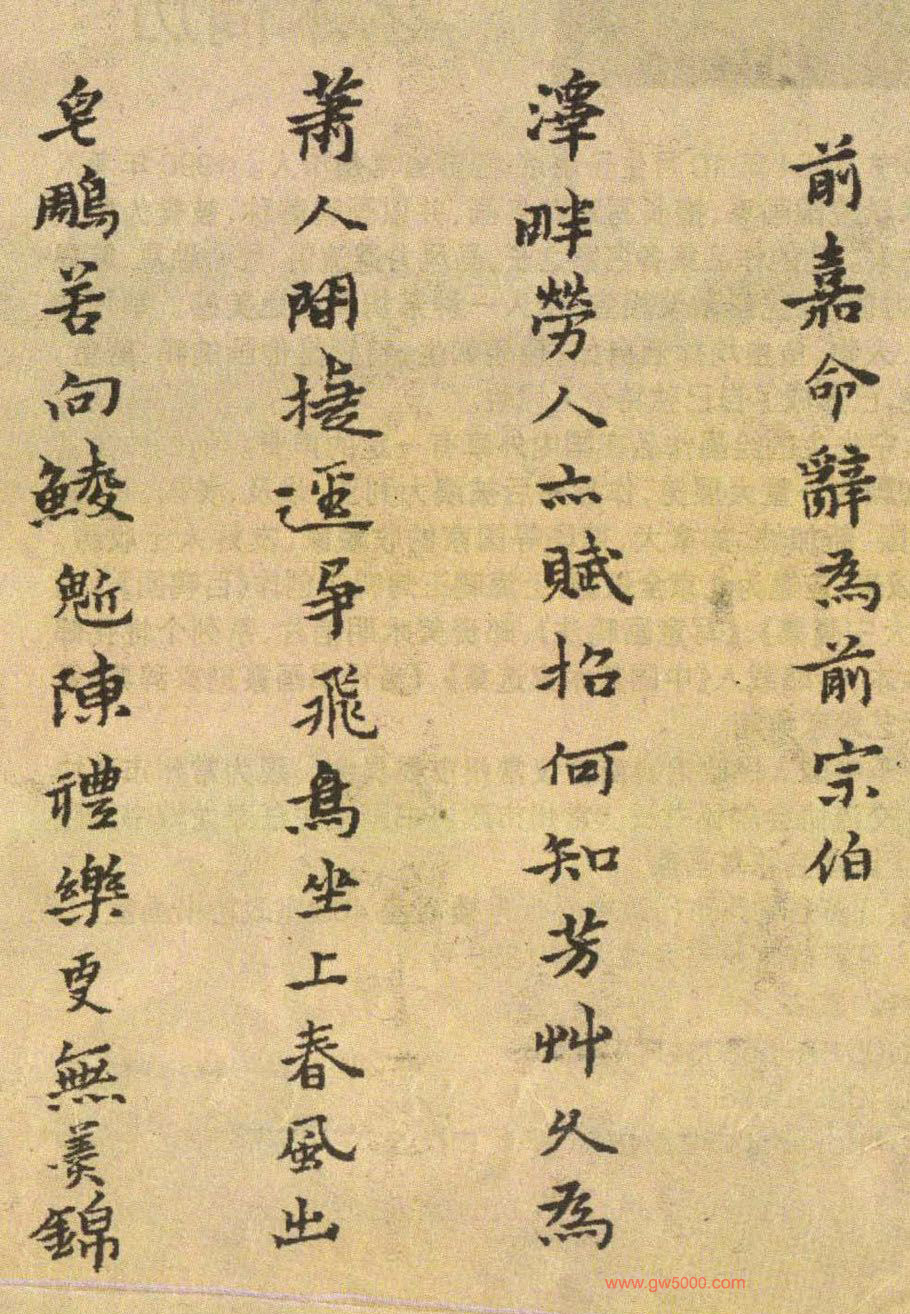 前嘉命辭為前宗伯
澤畔勞人亦賦招何知芳艸久為
蕭人間捷逕爭飛鳥坐上春風出
皂鵰苦向鯪魁陳禮樂更無美錦
www.gw5000.com